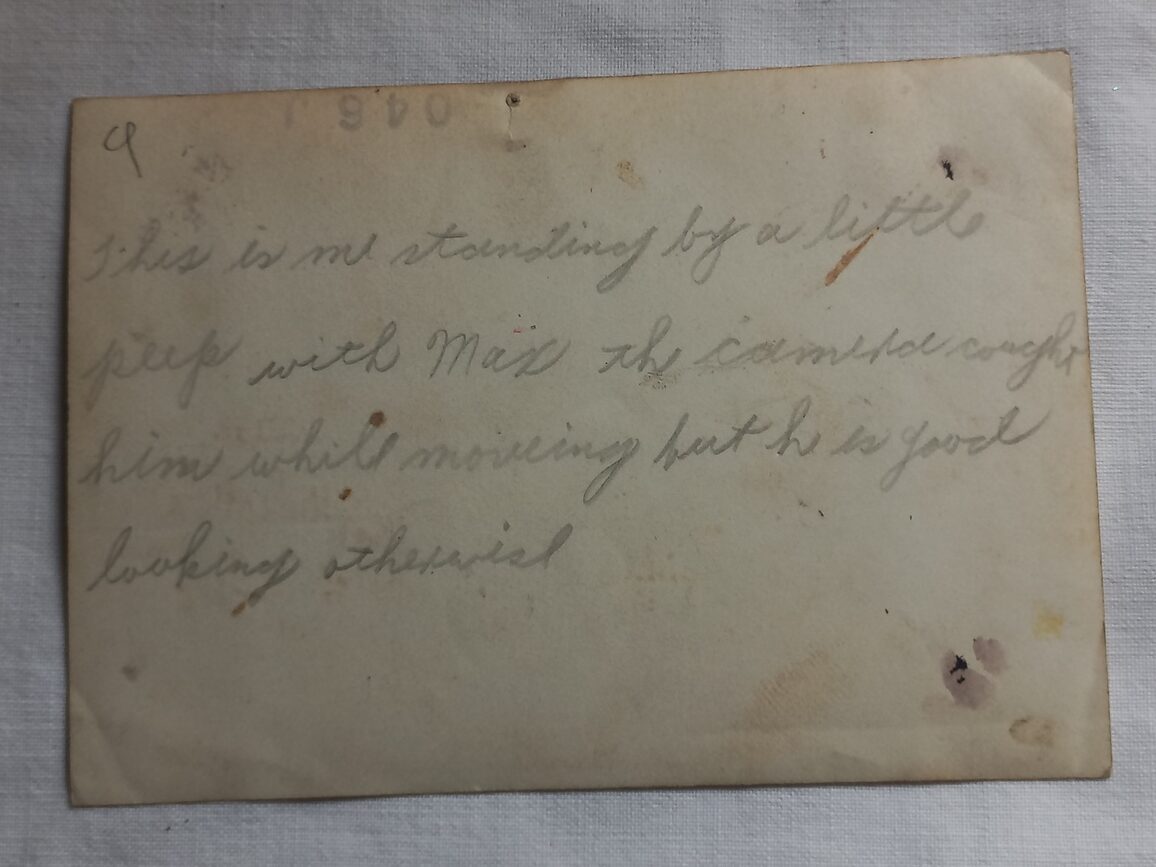 9
This is me standing by a little
peep with Max the camera caught
him while moveing but h is good
looking otherwise